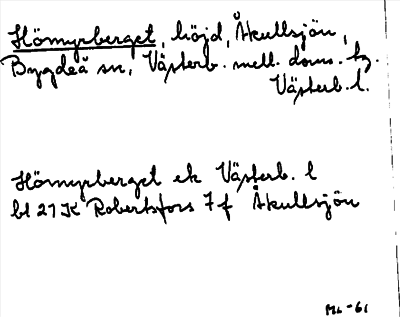 Hömyrberget, höjd, Åkullsjön,
Bygdeå sn, Västerb. mell. doms. hg.
Västerb. l.
Hömyrberget ek Västerb. l
bl 21 K Robertsfors 7 f Åkullsjön
ML-61